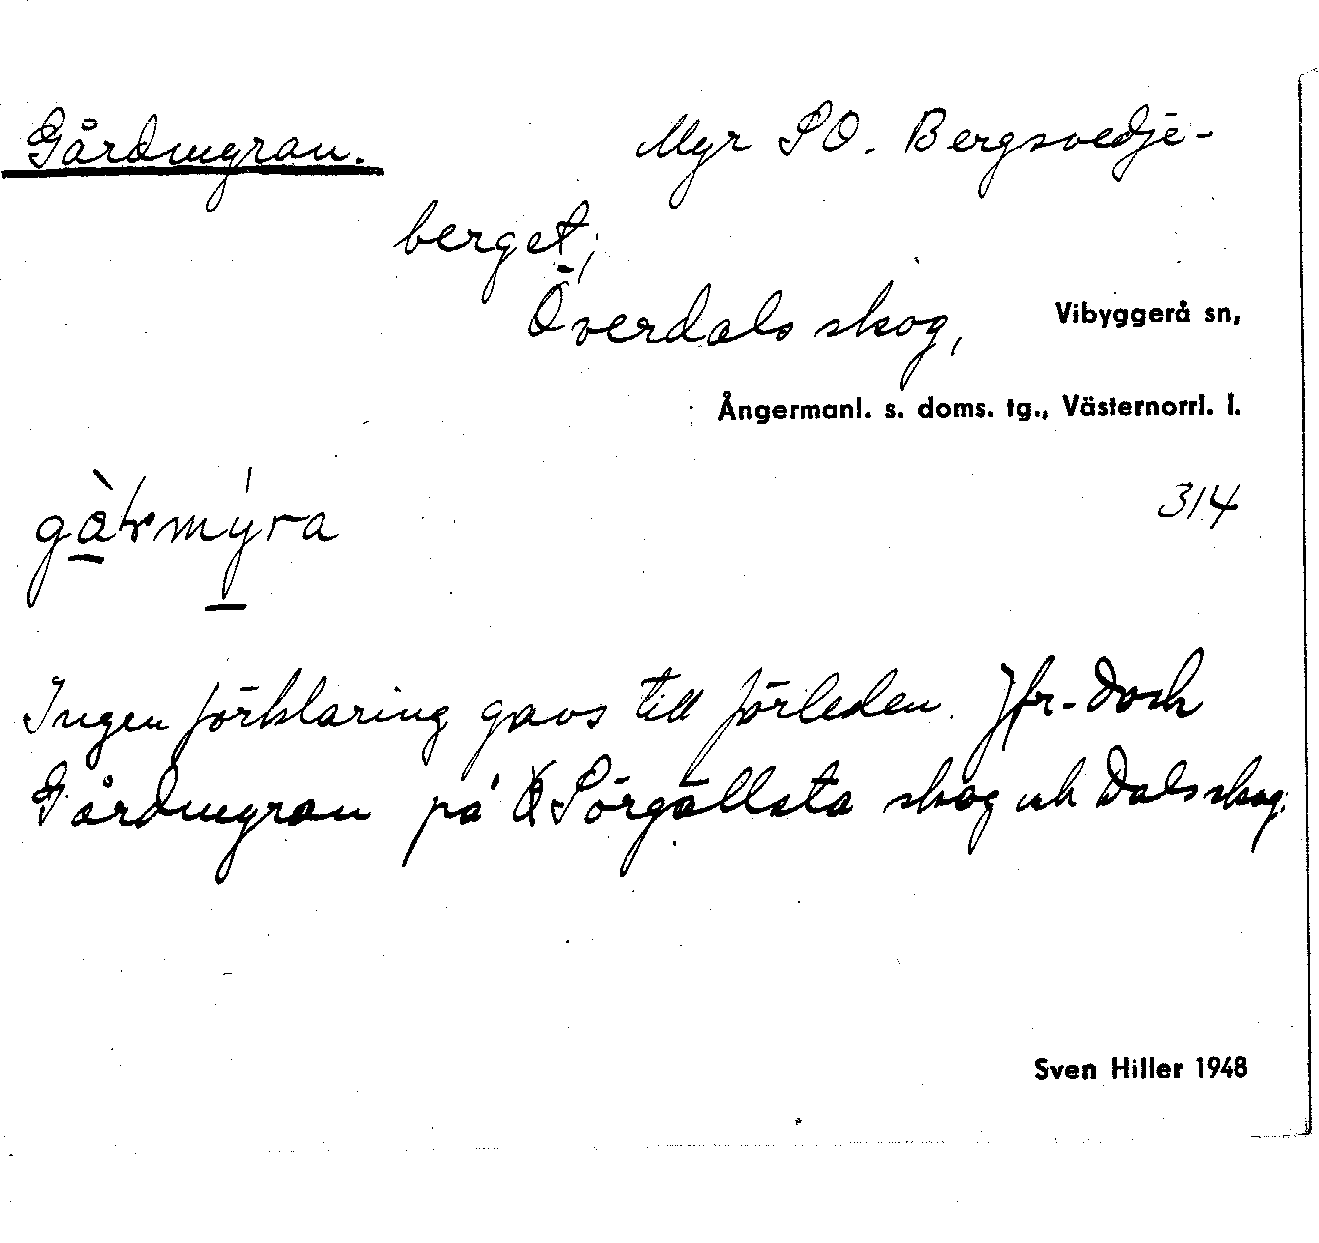 Gårdmyran. Myr SO. Bergsvedje-
berget,
Överdals skog, Vibyggerå sn,
Ångermanl. s. doms. tg., Västernorrl. l.
314
Ingen förklaring gavs till förleden. Jfr. dock
Gårdmyran på Sörgällsta skog och Dals skog.
Sven Hiller 1948